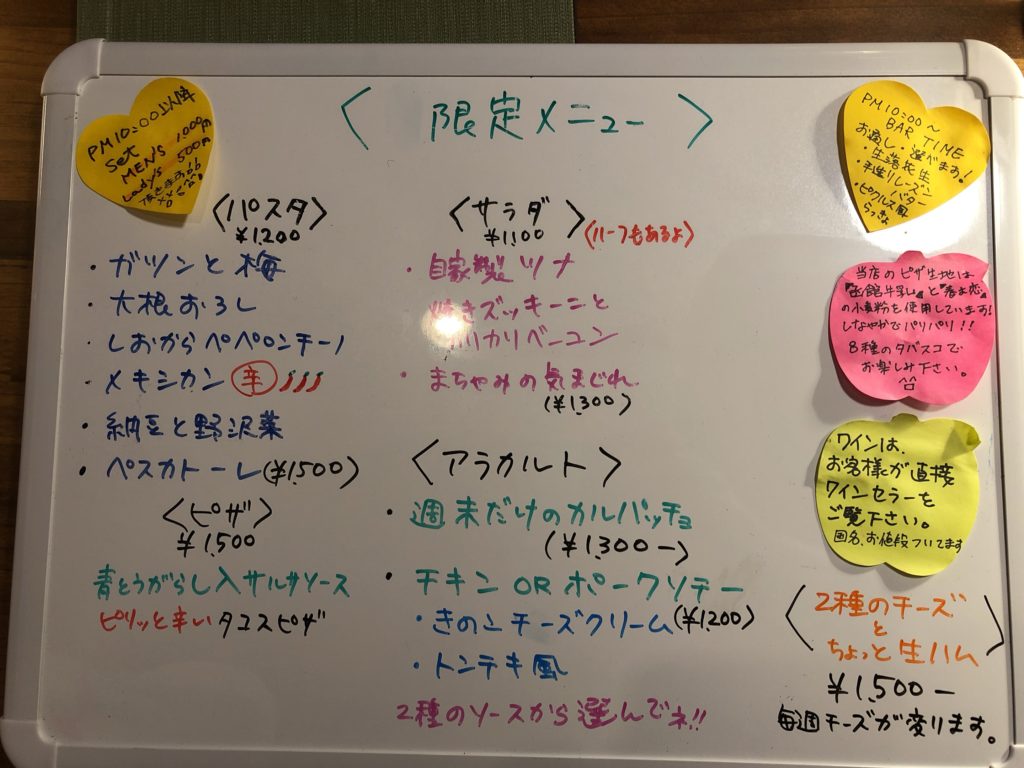 〈 限定メニュー 〉
PM10:00以降
Set
MEN's 1000円
Lady's 500円
〈パスタ〉
¥1,200
・ガツンと梅
・大根おろし
・しおからペペロンチーノ
・メキシカン 辛
・納豆と野沢菜
・ペスカトーレ(¥1,500)
〈ピザ〉
¥1,500
青とうがらし入サルサソース
ピリッと辛いタコスピザ
〈サラダ〉
¥1,100
〈ハーフもあるよ〉
・自家製ツナ
焼きズッキーニと
カリカリベーコン
・まちゃみの気まぐれ
(¥1,300)
〈アラカルト〉
・週末だけのカルパッチョ
(¥1,300ー)
・チキン OR ポークソテー
・きのこチーズクリーム(¥1,200)
・トンテキ風
2種のソースから選んでネ!!
PM10:00〜
BAR TIME
お通し・選べます!
・生落花生
・手造りレーズンバター
・ピクルス風
らっきょ
当店のピザ生地は
『函館牛乳』と『春よ恋』
の小麦粉を使用しています!
しなやかでパリパリ!!
8種のタバスコで
お楽しみ下さい。
ワインは、
お客様が直接
ワインセラーを
ご覧下さい。
国名、お値段ついてます
〈2種のチーズ
と
ちょっと生ハム〉
¥1,500ー
毎週チーズが変ります。